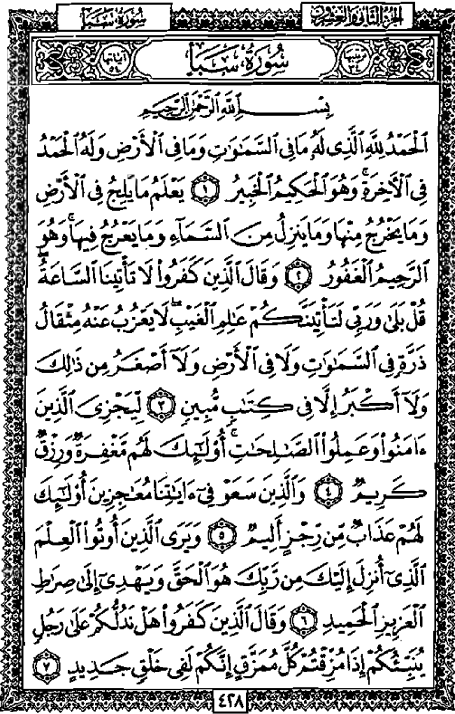 الجزء الثاني والعشرون
سُورَةُ سَبَإٍ
ترتيبها ٣٤
سُورَةُ سَبَإٍ
آياتها ٥٤
بِسْمِ ٱللَّهِ ٱلرَّحْمَٰنِ ٱلرَّحِيمِ
ٱلْحَمْدُ لِلَّهِ ٱلَّذِى لَهُۥ مَا فِى ٱلسَّمَٰوَٰتِ وَمَا فِى ٱلْأَرْضِ وَلَهُ ٱلْحَمْدُ
فِى ٱلْأَخِرَةِۚ وَهُوَ ٱلْحَكِيمُ ٱلْخَبِيرُ ١ يَعْلَمُ مَا يَلِجُ فِى ٱلْأَرْضِ
وَمَا يَخْرُجُ مِنْهَا وَمَا يَنزِلُ مِنَ ٱلسَّمَآءِ وَمَا يَعْرُجُ فِيهَاۚ وَهُوَ
ٱلرَّحِيمُ ٱلْغَفُورُ ٢ وَقَالَ ٱلَّذِينَ كَفَرُوا۟ لَا تَأْتِينَا ٱلسَّاعَةُۖ
قُلْ بَلَىٰ وَرَبِّى لَتَأْتِيَنَّكُمْ عَٰلِمِ ٱلْغَيْبِۖ لَا يَعْزُبُ عَنْهُ مِثْقَالُ
ذَرَّةٍ فِى ٱلسَّمَٰوَٰتِ وَلَا فِى ٱلْأَرْضِ وَلَآ أَصْغَرُ مِن ذَٰلِكَ
وَلَآ أَكْبَرُ إِلَّا فِى كِتَٰبٍ مُّبِينٍ ٣ لِّيَجْزِىَ ٱلَّذِينَ
ءَامَنُوا۟ وَعَمِلُوا۟ ٱلصَّٰلِحَٰتِۚ أُو۟لَٰٓئِكَ لَهُم مَّغْفِرَةٌ وَرِزْقٌ
كَرِيمٌ ٤ وَٱلَّذِينَ سَعَوْ فِىٓ ءَايَٰتِنَا مُعَٰجِزِينَ أُو۟لَٰٓئِكَ
لَهُمْ عَذَابٌ مِّن رِّجْزٍ أَلِيمٌ ٥ وَيَرَى ٱلَّذِينَ أُوتُوا۟ ٱلْعِلْمَ
ٱلَّذِىٓ أُنزِلَ إِلَيْكَ مِن رَّبِّكَ هُوَ ٱلْحَقَّ وَيَهْدِىٓ إِلَىٰ صِرَٰطِ
ٱلْعَزِيزِ ٱلْحَمِيدِ ٦ وَقَالَ ٱلَّذِينَ كَفَرُوا۟ هَلْ نَدُلُّكُمْ عَلَىٰ رَجُلٍ
يُنَبِّئُكُمْ إِذَا مُزِّقْتُمْ كُلَّ مُمَزَّقٍ إِنَّكُمْ لَفِى خَلْقٍ جَدِيدٍ ٧
٤٢٨